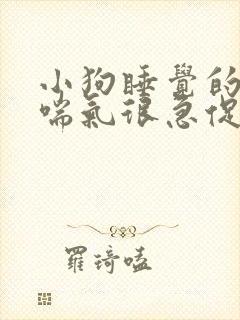 小狗睡覺的
喘氣很急促
羅琦嗑